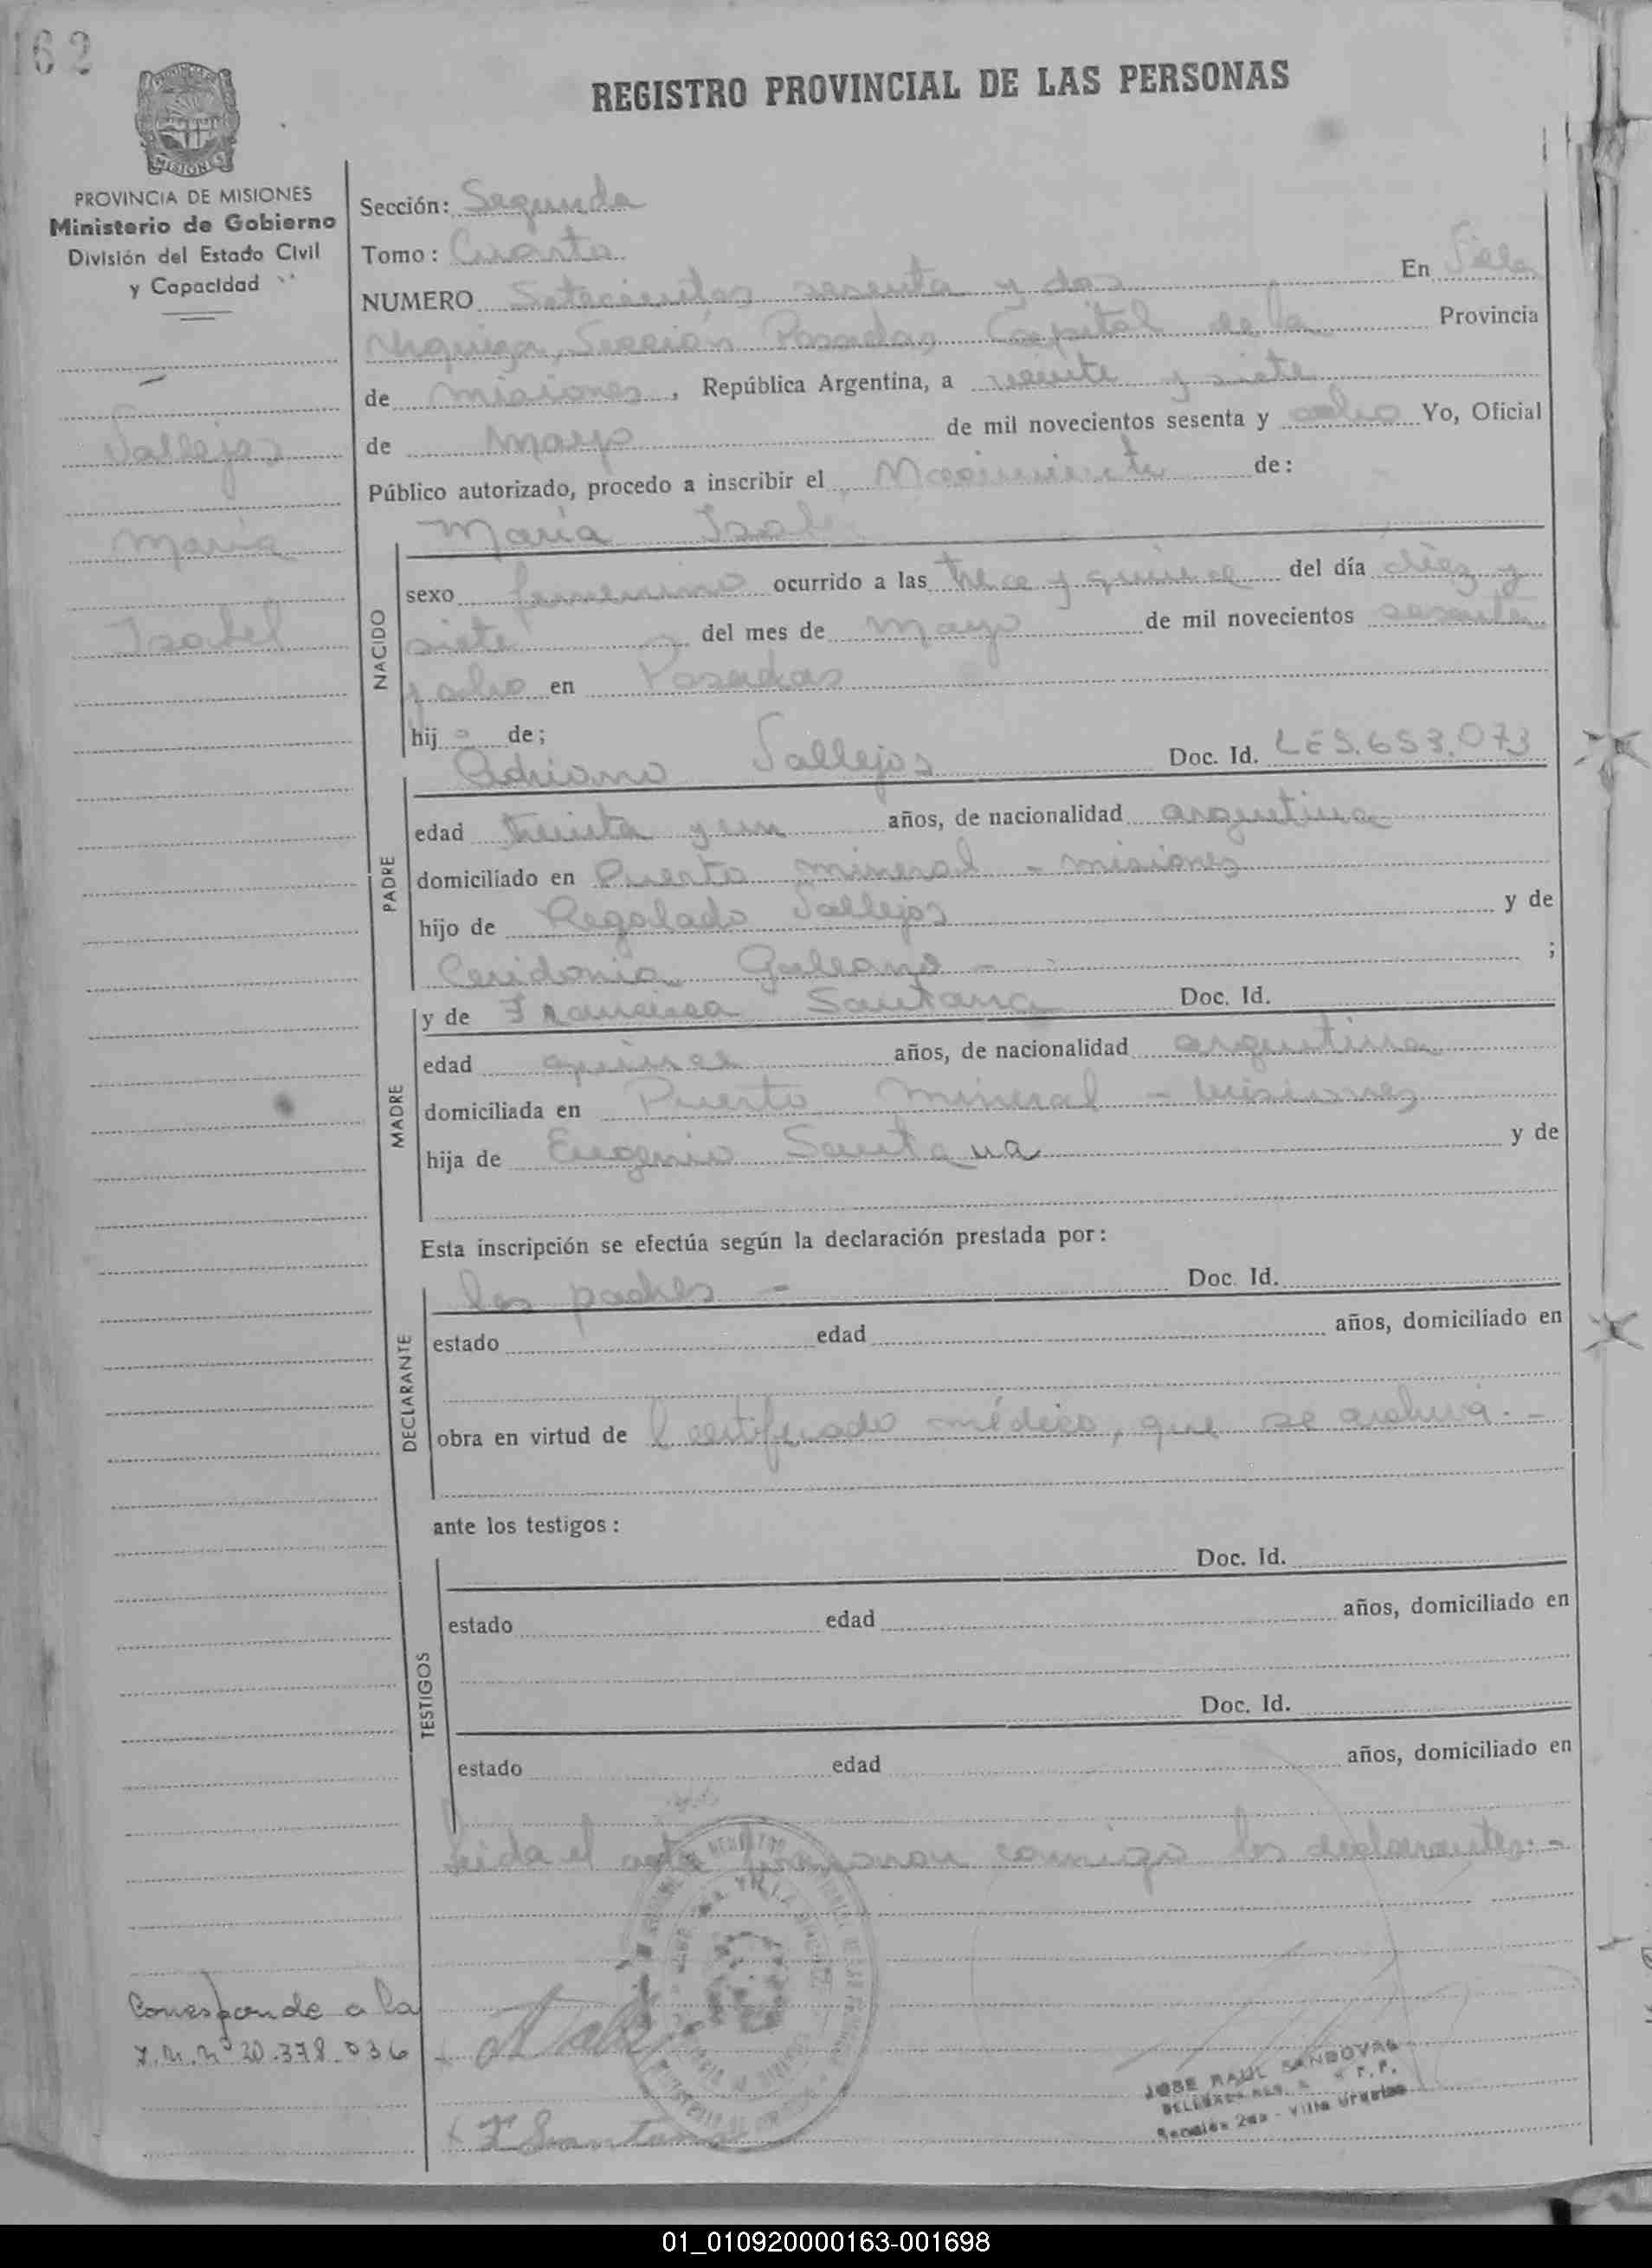 162
REGISTRO PROVINCIAL DE LAS PERSONAS
MISIONES
PROVINCIA DE MISIONES
Ministerio de Gobierno
División del Estado Civil
y Capacidad
Vallejos
María
Isabel
Sección: Segunda
Tomo: Cuarto
NUMERO Setecientos sesenta y dos En Villa
Urquiza, Sección Posadas, Capital de la Provincia
de Misiones, República Argentina, a veinte y siete
de Mayo de mil novecientos sesenta y ocho Yo, Oficial
Público autorizado, procedo a inscribir el Nacimiento de:
María Isabel
NACIDO
sexo femenino ocurrido a las trece y quince del día diez y
siete del mes de Mayo de mil novecientos sesenta
y ocho en Posadas
hija de;
PADRE
Adriano Vallejos Doc. Id.
edad treinta y un años, de nacionalidad argentina
domiciliado en Puerto Mineral - Misiones
hijo de Regalado Vallejos y de
Ceridonia Galeano - ;
MADRE
y de Francisca Santana Doc. Id.
edad quince años, de nacionalidad argentina
domiciliada en Puerto Mineral - Misiones
hija de Eugenio Santana y de
Esta inscripción se efectúa según la declaración prestada por:
DECLARANTE
los padres - Doc. Id.
estado edad años, domiciliado en
obra en virtud de l certificado médico, que se archiva. -
ante los testigos:
TESTIGOS
Doc. Id.
estado edad años, domiciliado en
Doc. Id.
estado edad años, domiciliado en
Leida el acta firman conmigo los declarantes. -
Corresponde a la
20.378.036
F Santana
JOSE RAUL SANDOVAL
Sección 2da - Villa Urquiza
01_010920000163-001698